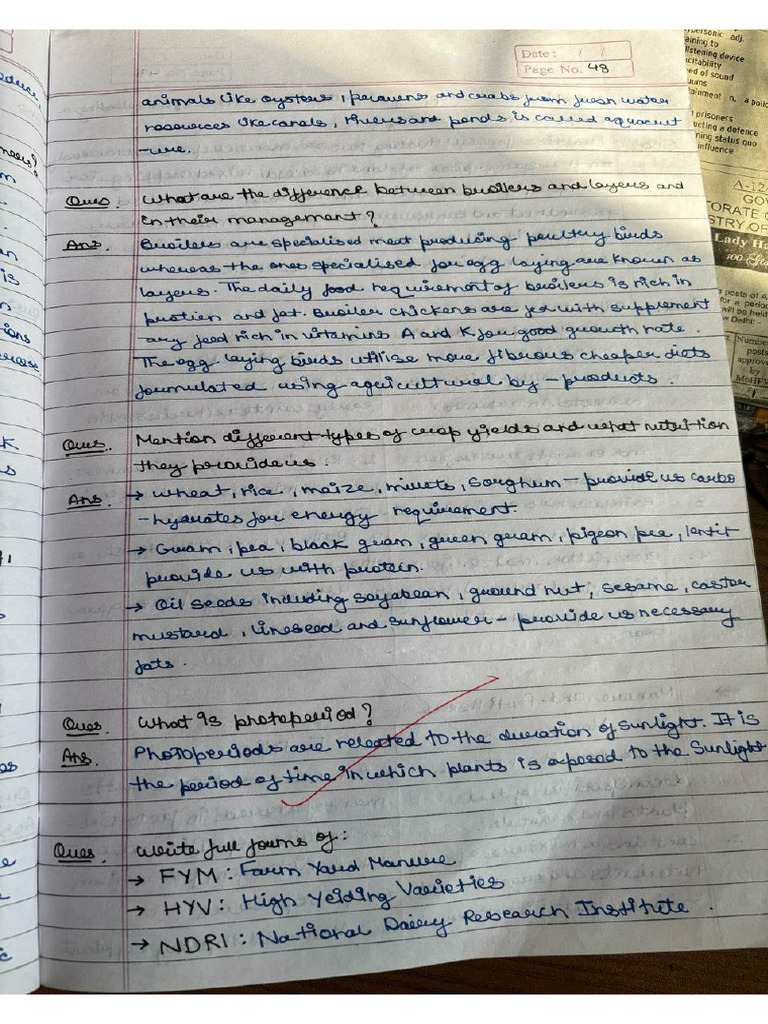 Date : / /
Page No. 48
animals like oysters, prawns and crabs from fresh water
resources like canals, rivers and ponds is called aquacult
-ure.
Ques. What are the difference between broilers and layers and
in their management?
Ans. Broilers are specialised meat producing poultry birds
whereas the ones specialised for egg laying are known as
layers. The daily food requirement of broilers is rich in
protien and fat. Broiler chickens are fed with supplement
-ary feed rich in vitamins A and K for good growth rate.
The egg laying birds utilise more fibrous cheaper diets
formulated using agricultural by-products.
Ques. Mention different types of crop yields and what nutrition
they provide us.
Ans → Wheat, rice, maize, millets, Sorghum - provide us carbo
-hydrates for energy requirement
→ Gram, pea, black gram, green gram, pigeon pea, lentil
provide us with protein.
→ Oil seeds including soyabean, ground nut, sesame, castor
mustard, lineseed and sunflower - provide us necessary
fats.
Ques. What is photoperiod?
Ans. Photoperiods are releated to the duration of sunlight. It is
the period of time in which plants is exposed to the sunlight
Ques. Write full forms of:
→ FYM : Farm Yard Manure
→ HYV : High Yeilding Varieties
→ NDRI : National Dairy Research Institute.
adj.
listening device
ed of sound
prisoners
ucting a defence
ning status quo
influence
A-12
GO
TORATE
STRY OF
Lady Ha
posts of A
for a perio
will be held
Delhi:-
Number
posts
approve
by